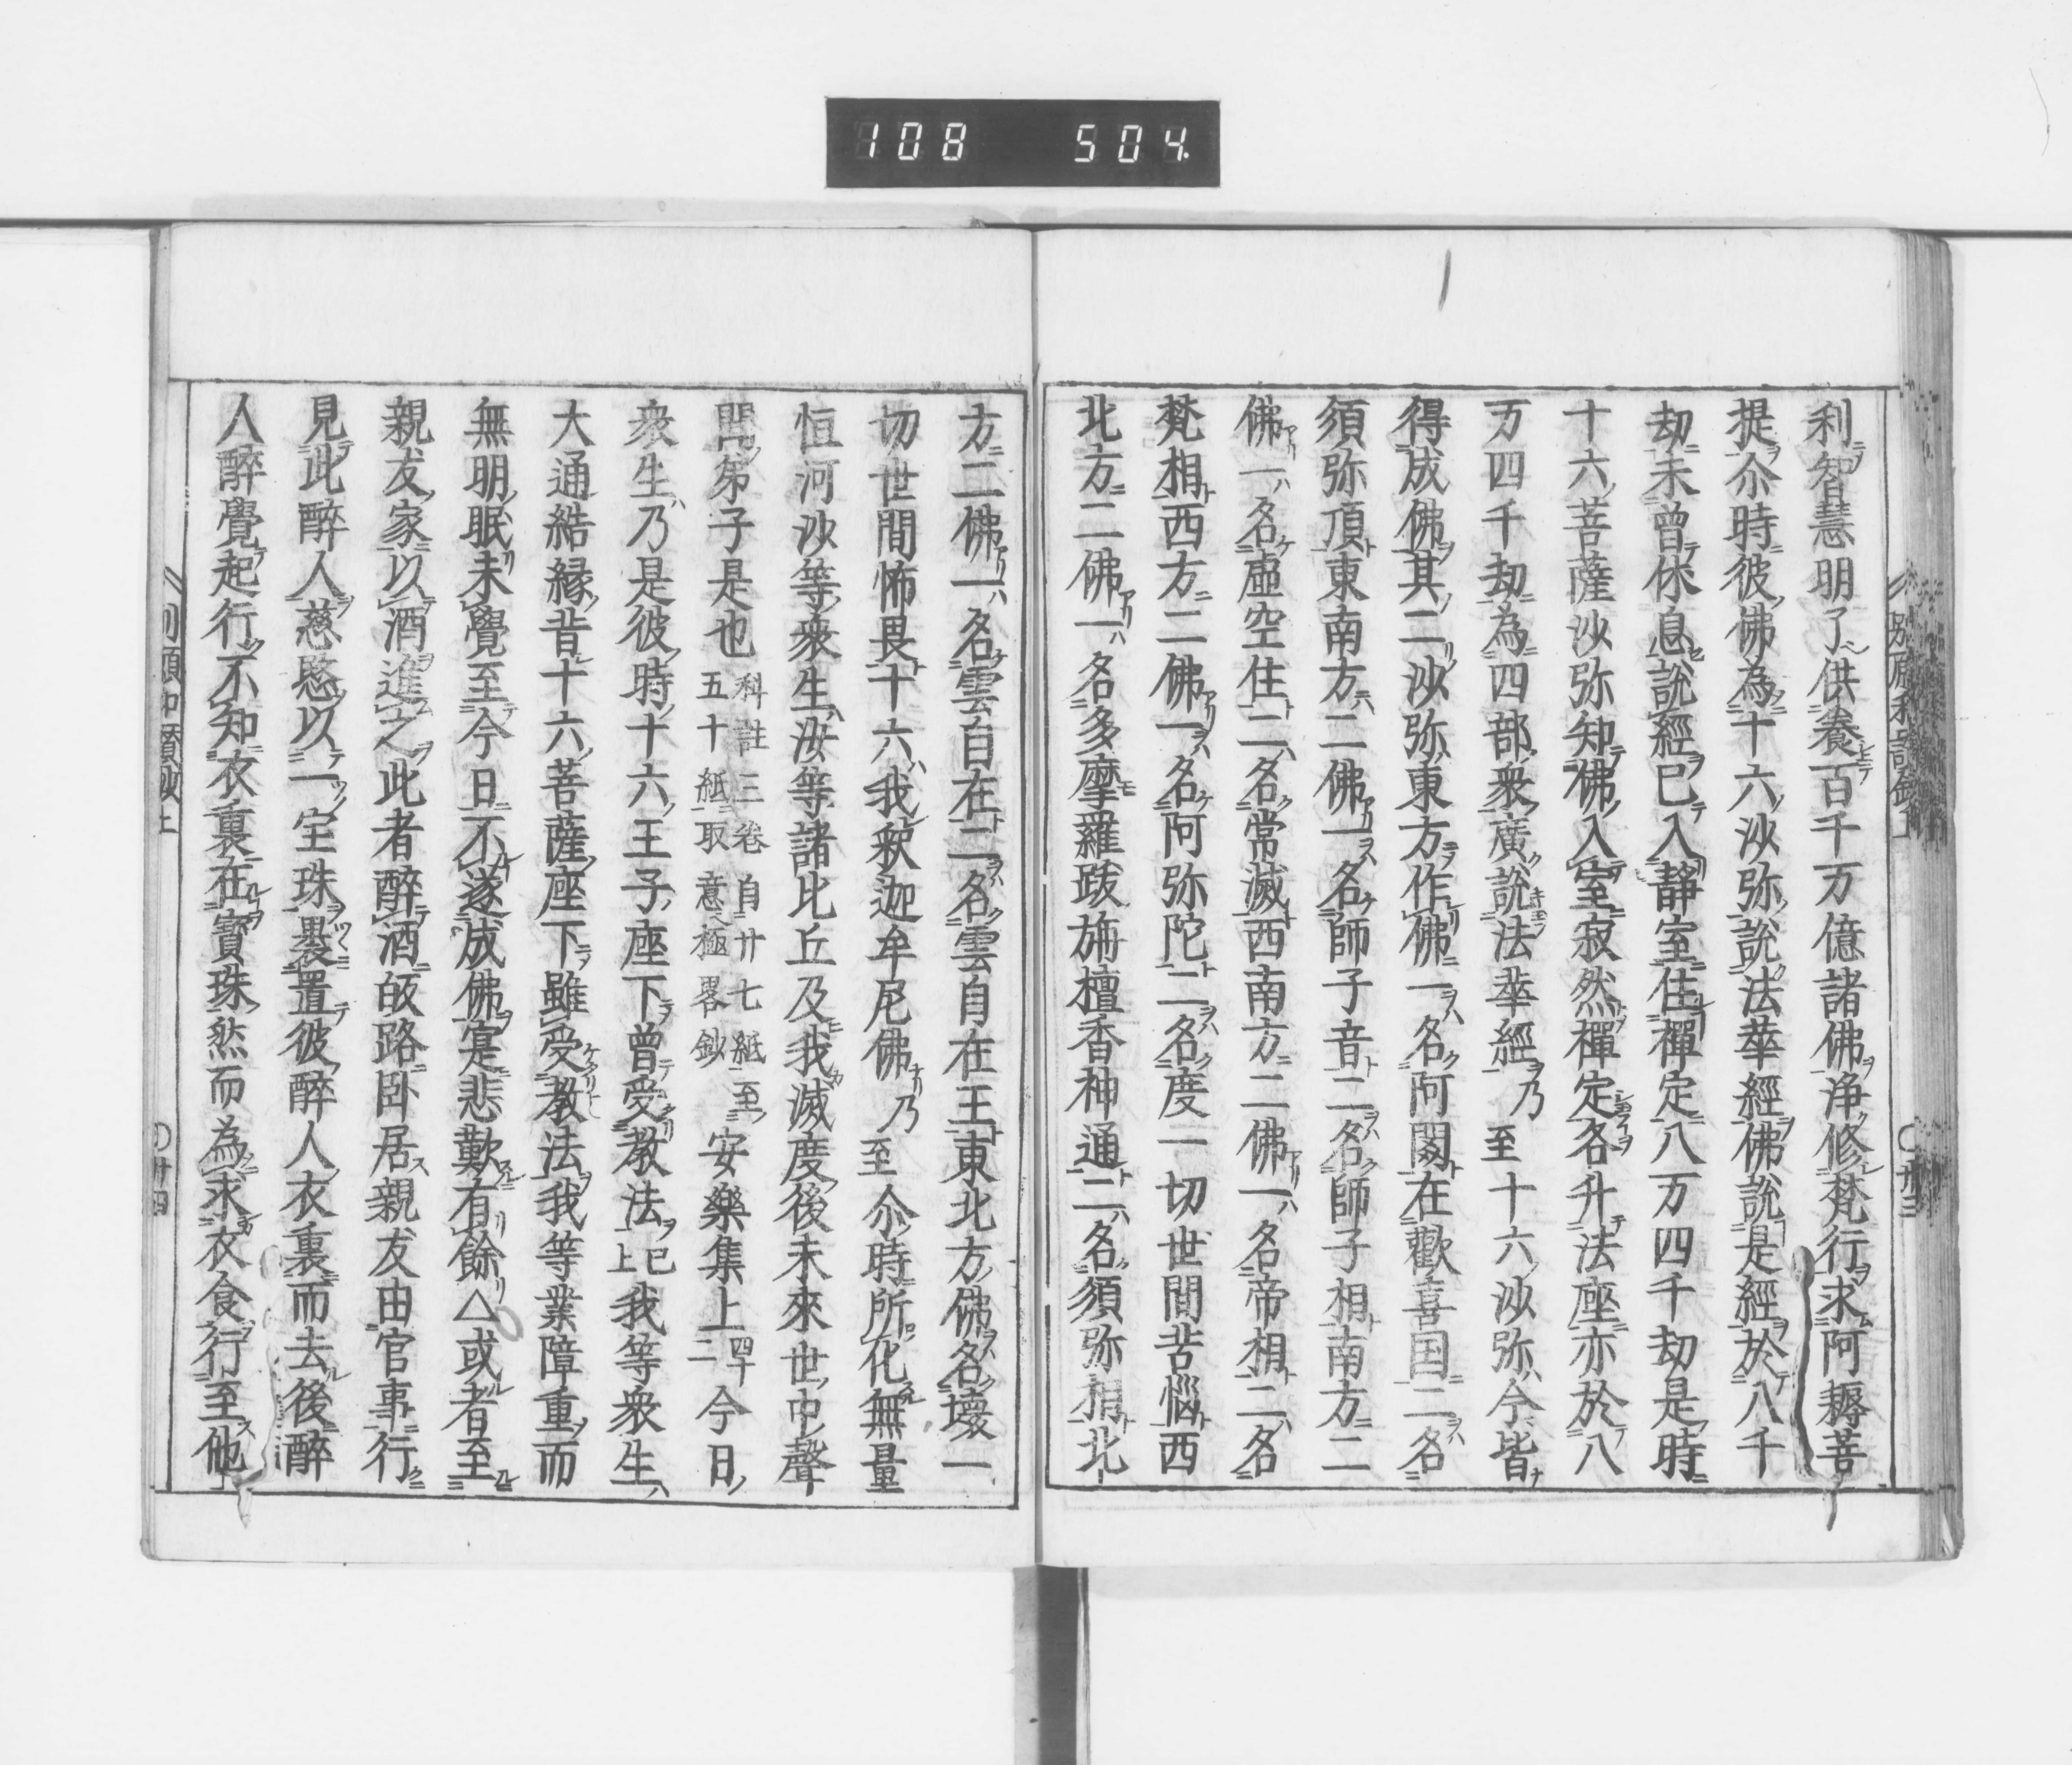 108 504.
利智慧明了供養百千万億諸佛浄修梵行求阿耨菩
提尒時彼佛為十六沙弥說法華經佛說是經於八千
劫未曾休息說經已入靜室住禪定八万四千劫是時
十六菩薩沙弥知佛入室寂然禪定各升法座亦於八
万四千劫為四部衆廣說法華經乃至十六沙弥今皆
得成佛其二沙弥東方作佛一名阿閦在歡喜国二名
須弥頂東南方二佛一名師子音二名師子相南方二
佛一名虛空住二名常滅西南方二佛一名帝相二名
梵相西方二佛一名阿弥陀二名度一切世間苦惱西
北方二佛一名多摩羅跋旃檀香神通二名須弥相北
方二佛一名雲自在二名雲自在王東北方佛名壞一
切世間怖畏十六我釈迦牟尼佛乃至尒時所化無量
恒河沙等衆生汝等諸比丘及我滅度後未來世中聲
聞弟子是也科註三卷自廿七紙至五十紙取意極畧鈔安樂集上四十二今日
衆生乃是彼時十六王子座下曾受教法已上我等衆生
大通結縁昔十六菩薩座下雖受教法我等業障重而
無明眠未覺至今日不遂成佛寔悲歎有餘△或者至
親友家以酒進之此者醉酒故路卧居親友由官事行
見此醉人慈愍以一宝珠裹置彼醉人衣裏而去後醉
人醉覺起行不知衣裏在寶珠然而為求衣食行至他